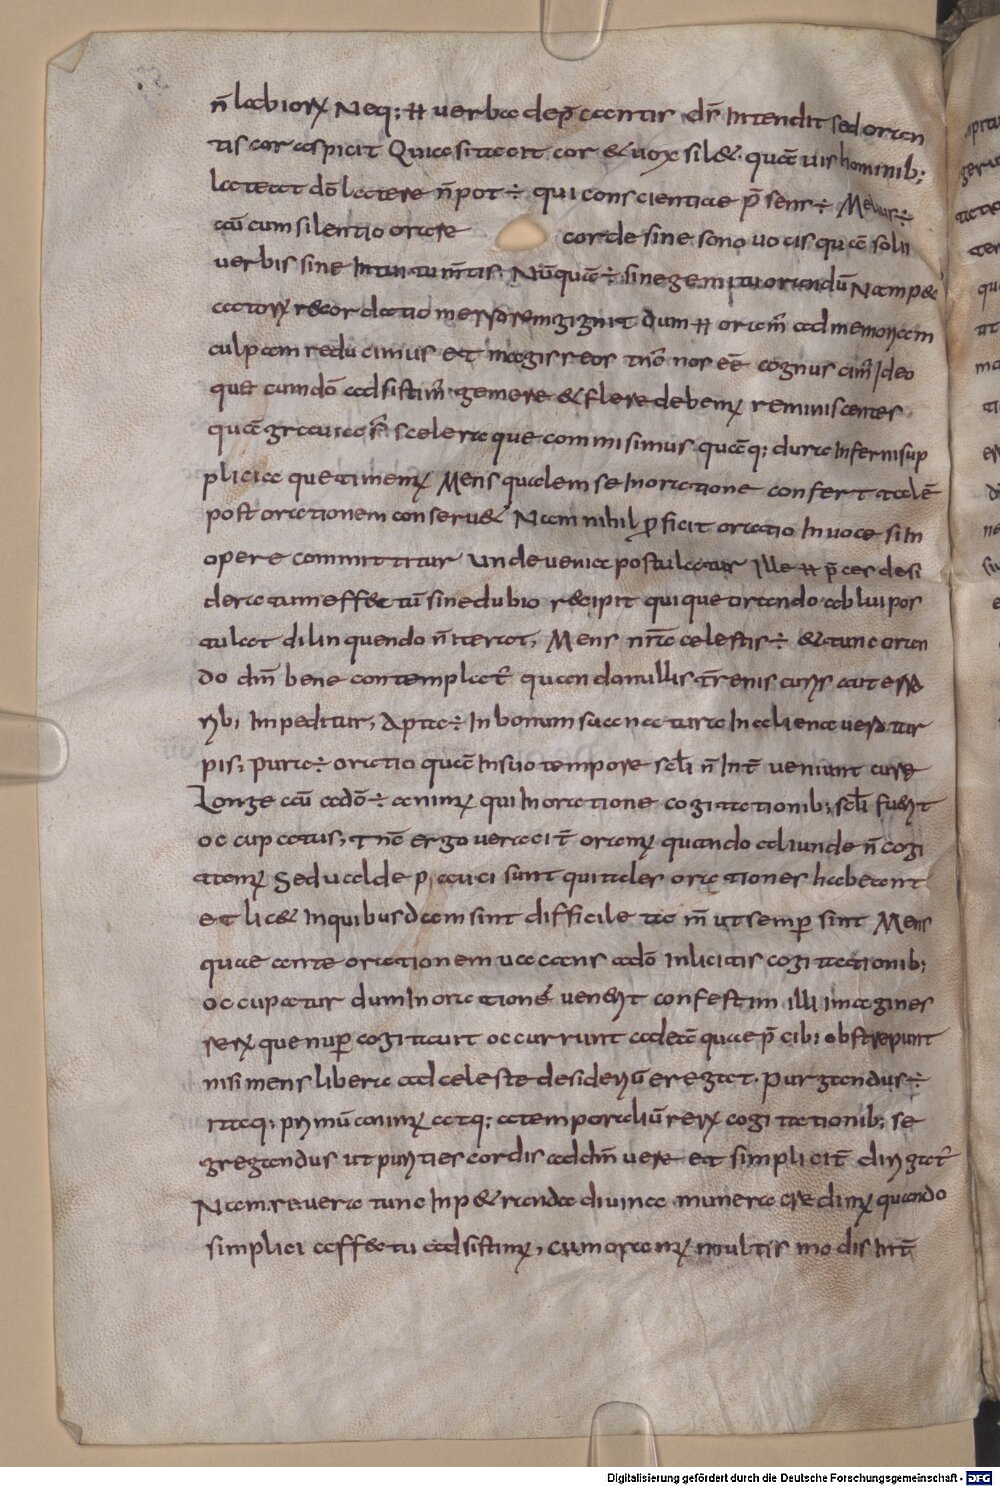 n̄ labiorꝝ Neq; ĩ uerba dep̄cantis dr̄ Intendit sed oran
tis cor aspicit Quia si tacit cor & uox sil&. quā uis hominib;
lateat dō latere n̄ pot ÷ qui conscientiae p̄sens ÷ Melius ÷
aū cum silentio orare corde sine sono uocis quā solū
uerbis sine Intuitu m̄tis. Nūquā ÷ sine gemitu orandū Nam pec
catorꝝ recordatio merorem gignit dum ĩ oram̄ ad memoriam
culpam reducimus et magis reos tn̄c nos eē cognuscim̄ Ideo
que cum dō adsistim̄ gemere & flere debemꝰ reminiscentes
quā grauia s̄ scelera que commisimus quāq; dura Inferni sup
plicia que timemꝰ Mens qualem se In oratione confert talē
post orationem conseru& Nam nihil ꝓficit oratio In uoce si In
opere committitur unde uenia postulatur Ille ĩ p̄ces desi
deratum effectū sine dubio recipit qui que orando abluipos
tulat dilinquendo n̄ iterat, Mens nr̄a celestis ÷ & tunc oran
do dm̄ bene contemplat̄ quando nullis t̄renis curis aut erro
ribi Impeditur, Apta ÷ In bonum sua natura In aliena uero tur
pis; pura ÷ oratio quā In suo tempore scl̄i n̄ Int̄ueniunt cure
Longe aū ado ÷ animꝰ qui In oratione cogitationib; scl̄i fuerit
occupatus, tn̄c ergo ueracit̄ oramꝰ quando aliunde n̄ cogi
tamꝰ Sed ualde pauci sunt qui tales orationes habeant
et lic& In quibusdam sint difficile ta m̄ ut semꝑ sint Mens
quae ante orationem uacans adō Inlicitis cogitationib;
occupatur dum In orationē uenerit confestim illi imagines
rerꝝ que nuꝑ cogitauit occurrunt adeā quae p̄cib; obstrepunt
nisi mens libera ad celeste desideriū eregat. Purgandus ÷
itaq; primū animꝰ atq; atemporaliū rerꝝ cogitationib; se
gregandus ut puri ties cordis addm̄ uere et simplicit̄ dirigat̄
Nam reuera tunc Inp&randa diuina munera credimꝰ quando
simplici affectu adsistimꝰ, cum oramꝰ multis modis Int̄
Digitalisierung gefördert durch die Deutsche Forschungsgemeinschaft - DFG